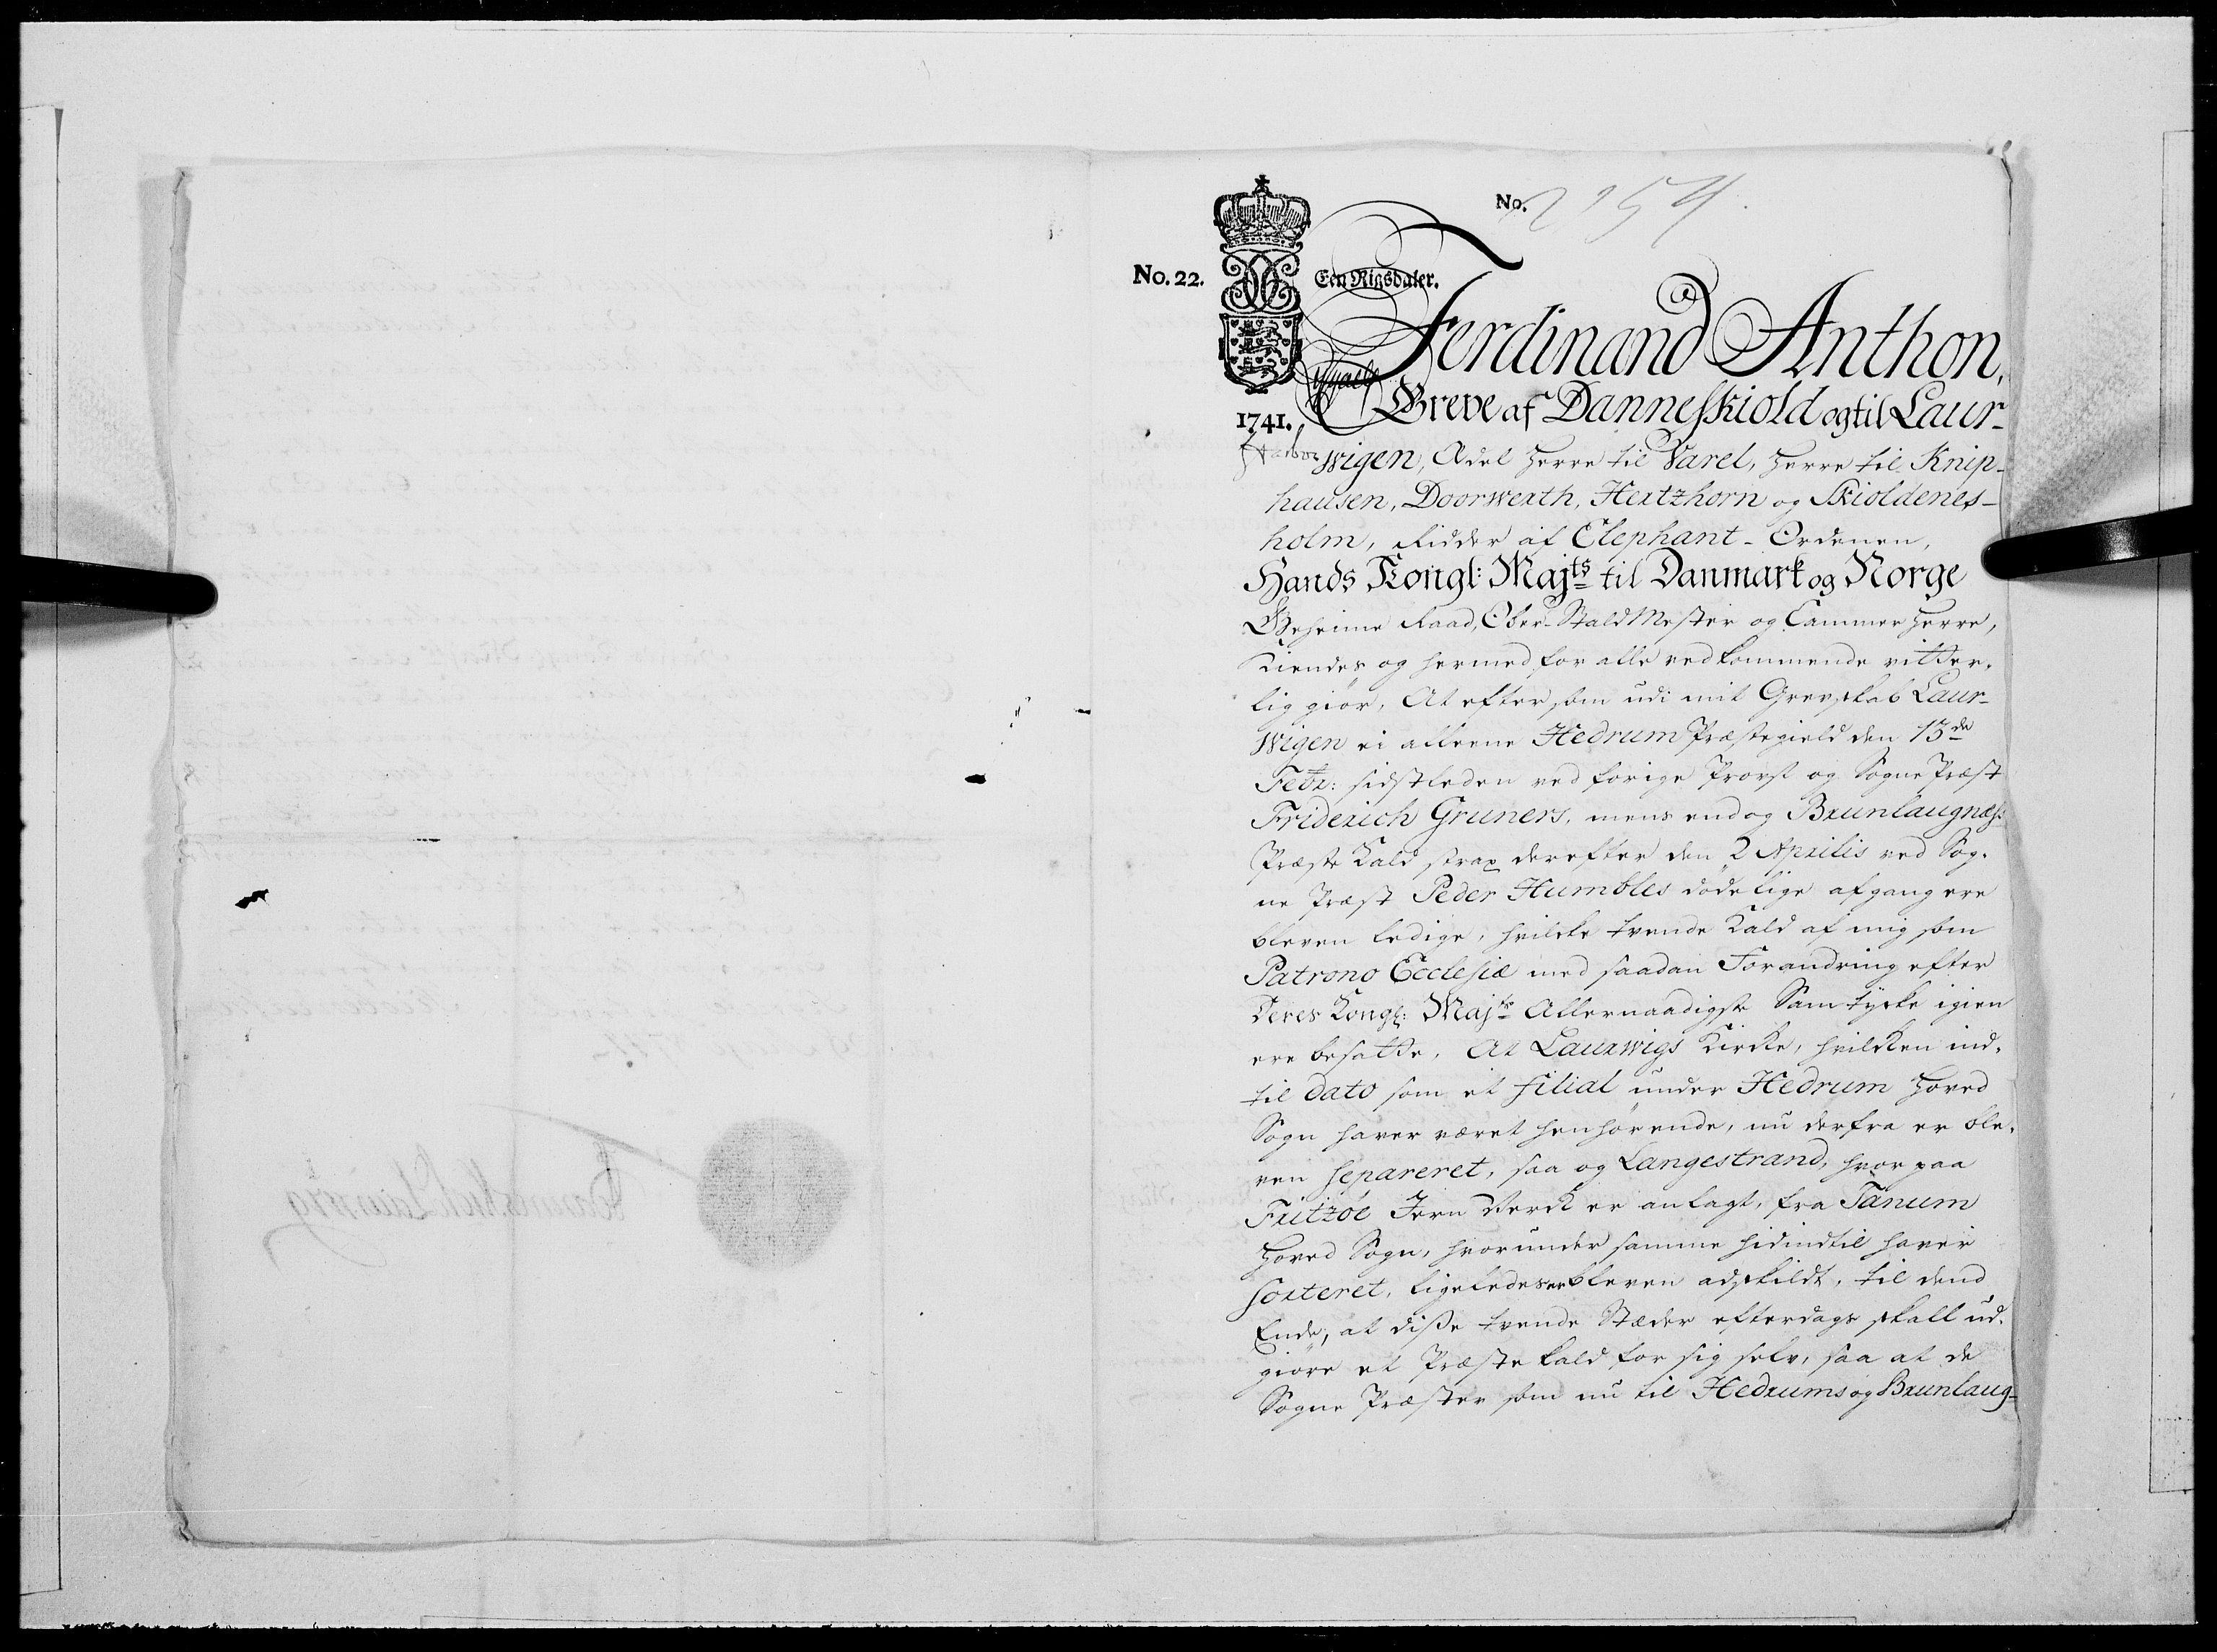 No. 2154.
No. 22.
Een Rigsdaler.
Ferdinand Anthon,
1741.
Greve af Dannesskiold og til Laur-
wigen, Ædel Herre til Varel, Herre til Knip-
hausen, Doorwerth, Hertzhorn og Skioldenes-
holm, Ridder af Elephant-Ordenen,
Hands Kongl: Majts til Danmark og Norge
Geheime Raad, Ober-Stald Mester og Cammer Herre,
Kiendes og hermed for alle vedkommende vitter-
lig giør, At eftersom udi mit Grevskab Laur-
wigen ei alleene Hedrum Præstegield den 13de
Febr: sidstleden ved forige Provst og Sogne Præst
Friderich Gruners, mens endog Brunlaugness
Præste Kald strax derefter den 2 Aprilis ved Sog-
ne Præst Peder Humbles dødelige afgang ere
bleven ledige, hvilcke tvende Kald af mig som
Patrono Ecclesiæ med saadan Forandring efter
Deres Kongl: Majts Allernaadigste Samtycke igien
ere besatte, At Laurwigs Kircke, hvilcken ind-
til dato som et filial under Hedrum Hoved
Sogn haver været henhørende, nu derfra er ble-
ven separeret, saa og Langestrand, hvorpaa
Fritzöe Jern Verck er anlagt, fra Tanum
Hoved Sogn, hvorunder samme hidindtil haver
sorteret, ligeledes er bleven adskildt, til dend
Ende, at disse tvende Stæder efterdags skall ud-
giøre et Præste Kald for sig selv, saa at de
Sogne Præster som nu til Hedrums og Brunlaug-